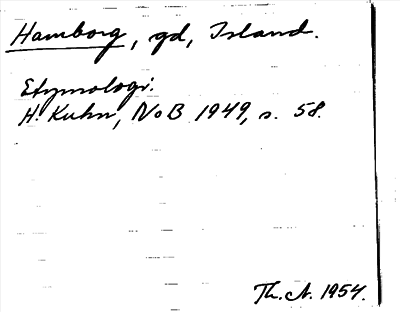 Hamborg, gd, Island.
Etymologi:
H. Kuhn, NoB 1949, s. 58.
Th. A. 1954.